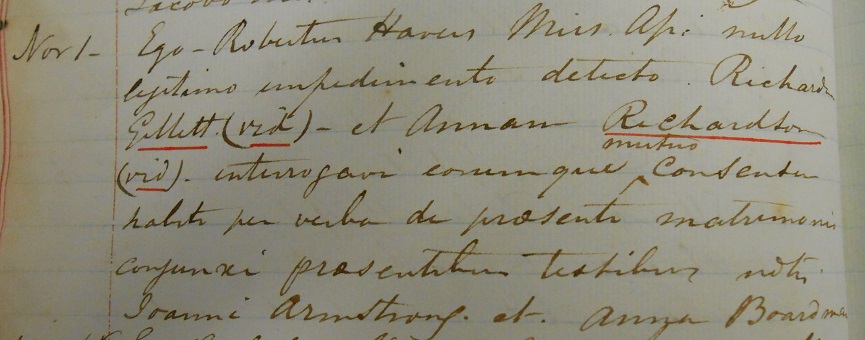 Nov 1 - Ego - Robertus Haves Miss. Ap: nullo
legitimo impedimento detecto Richard
Gillett (vid) - et Annam Richardson
mutuo
(vid). interrogavi eorumque consensu
habito per verba de præsenti matrimonio
conjunxi præsentibus testibus notis
Joanni Armstrong. et. Anna Boardman